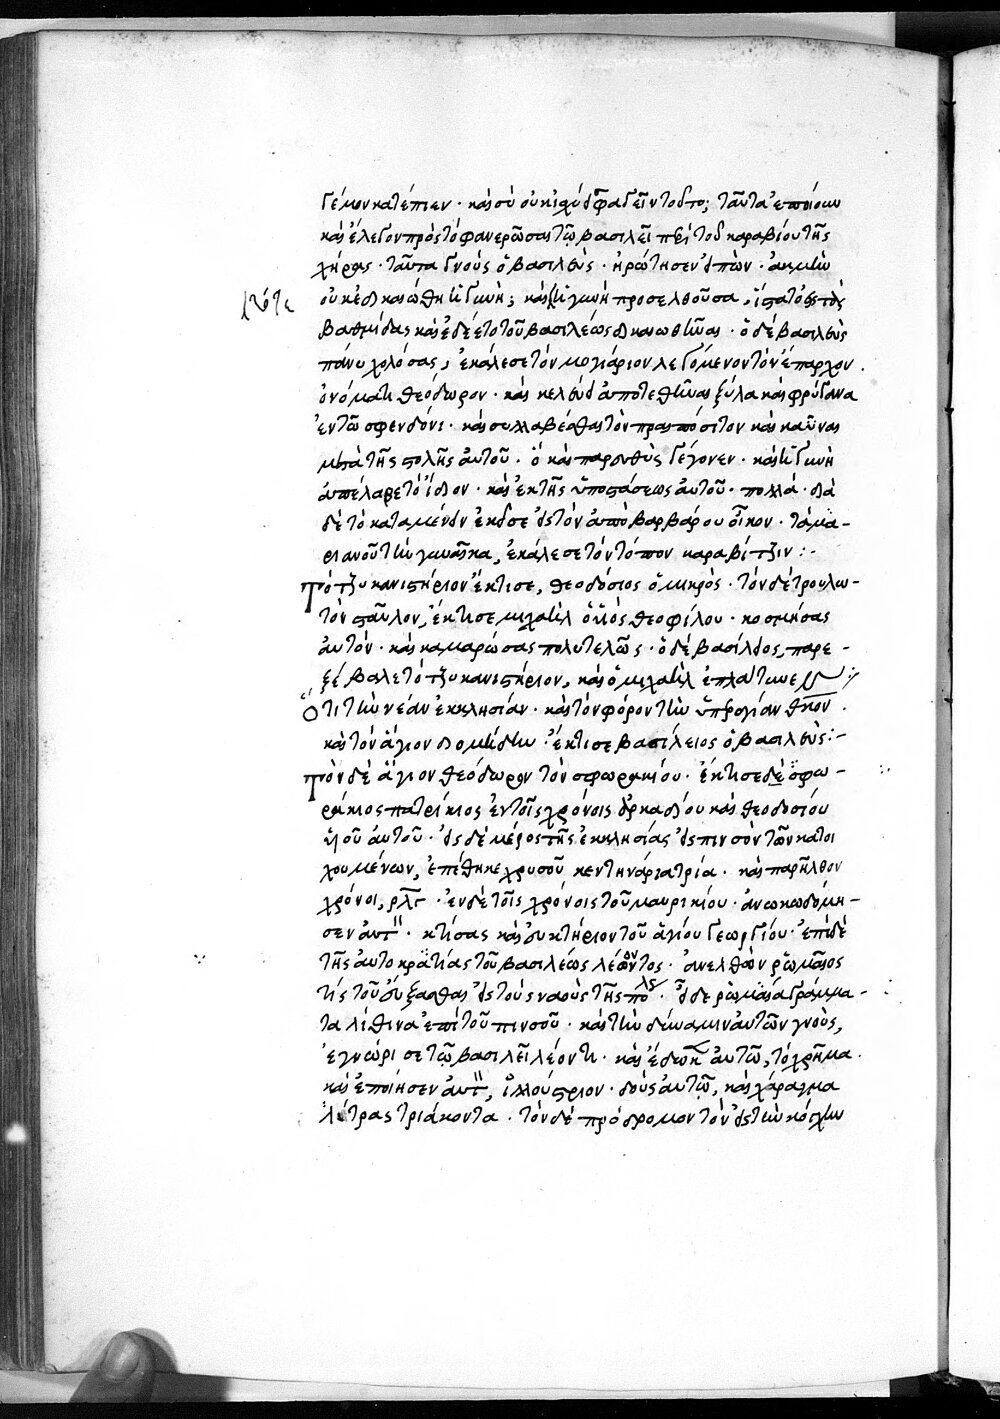 γέμον κατέπιεν · καὶ σὺ οὐκ ἰσχύεις φαγεῖν τοῦτο; ταῦτα ἐποίουν
καὶ ἔλεγον πρὸς τὸ φανερῶσαι τῷ βασιλεῖ περὶ τοῦ καραβίου τῆς
χήρας · ταῦτα γνοὺς ὁ βασιλεὺς · ἠρώτησεν εἰπών · ἀκμὴν
οὐκ ἐδικαιώθη ἡ γυνή; καὶ ἡ γυνὴ προσελθοῦσα, ἵστατο εἰς τὰς
βαθμίδας καὶ ἐδέετο τοῦ βασιλέως δικαιωθῆναι · ὁ δὲ βασιλεὺς
πάνυ χολόσας, ἐκάλεσε τὸν μογιάριον λεγόμενον τὸν ἔπαρχον.
ὀνόματι θεόδωρον · καὶ κελεύει ἀποτεθῆναι ξύλα καὶ φρύγανα
ἐν τῶ σφενδόνι · καὶ συλλαβέσθαι τὸν πραιπόσιτον καὶ καῦναι
μετὰ τῆς στολῆς αὐτοῦ · ὃ καὶ παρευθὺς γέγονεν · καὶ ἡ γυνὴ
ἀπέλαβε τὸ ἴδιον · καὶ ἐκ τῆς ὑποστάσεως αὐτοῦ · πολλά · διὰ
δὲ τὸ καταμένειν ἐκεῖσε εἰς τὸν ἀπὸ βαρβάρου οἶκον · τάμα-
ριανοῦ τὴν γυναῖκα, ἐκάλεσε τὸν τόπον καραβίτζιν :-
Τὸ τζυκανιστήριον ἔκτισε, θεοδόσιος ὁ μικρός · τὸν δὲ τρουλω-
τὸν παῦλον, ἔκτισε μιχαὴλ ὁ υἱὸς θεοφίλου · κοσμήσας
αὐτόν · καὶ καμαρώσας πολυτελῶς · ὁ δὲ βασίλειος, παρε-
ξέβαλε τὸ τζυκανιστήριον, καὶ ὁ μιχαὴλ ἐπλάτυνε
Ὅτι τὴν νέαν ἐκκλησίαν · καὶ τὸν φόρον τὴν ὑπεραγίαν θκον.
καὶ τὸν ἅγιον διομήδην · ἔκτισε βασίλειος ὁ βασιλεύς :-
Τὸν δὲ ἅγιον θεόδωρον τὸν σφωρακίου · ἔκτισε δὲ σφω-
ράκιος πατρίκιος ἐν τοῖς χρόνοις ἀρκαδίου καὶ θεοδοσίου
υἱοῦ αὐτοῦ · εἰς δὲ μέρος τῆς ἐκκλησίας εἰς πινσὸν τῶν κατη
χουμένων, ἐπέθηκε χρυσοῦ κεντηνάρια τρία · καὶ παρῆλθον
χρόνοι, ρλγ · ἐν δὲ τοῖς χρόνοις τοῦ μαυρικίου · ἀνωκωδόμη-
σεν αὐτ · κτίσας καὶ εὐκτήριον τοῦ ἁγίου γεωργίου · ἐπὶ δὲ
τῆς αὐτοκρατίας τοῦ βασιλέως λέοντος · ἀνελθὼν ῥωμαῖος
τίς τοῦ εὔξασθαι εἰς τοὺς ναοὺς τῆς πολ · εἶδε ῥωμαῖα γράμμα-
τα λίθινα ἐπὶ τοῦ πινσοῦ · καὶ τὴν δύναμιν αὐτῶν γνοὺς,
ἐγνώρισε τῷ βασιλεῖ λέοντι · καὶ ἔδωκ αὐτῶ, τὸ χρῆμα.
καὶ ἐποίησεν αὐτ, ἰλλούστριον · δοὺς αὐτῷ, καὶ χάραγμα
λίτρας τριάκοντα · τὸν δὲ πρόδρομον τὸν εἰς τὴν κόγχην